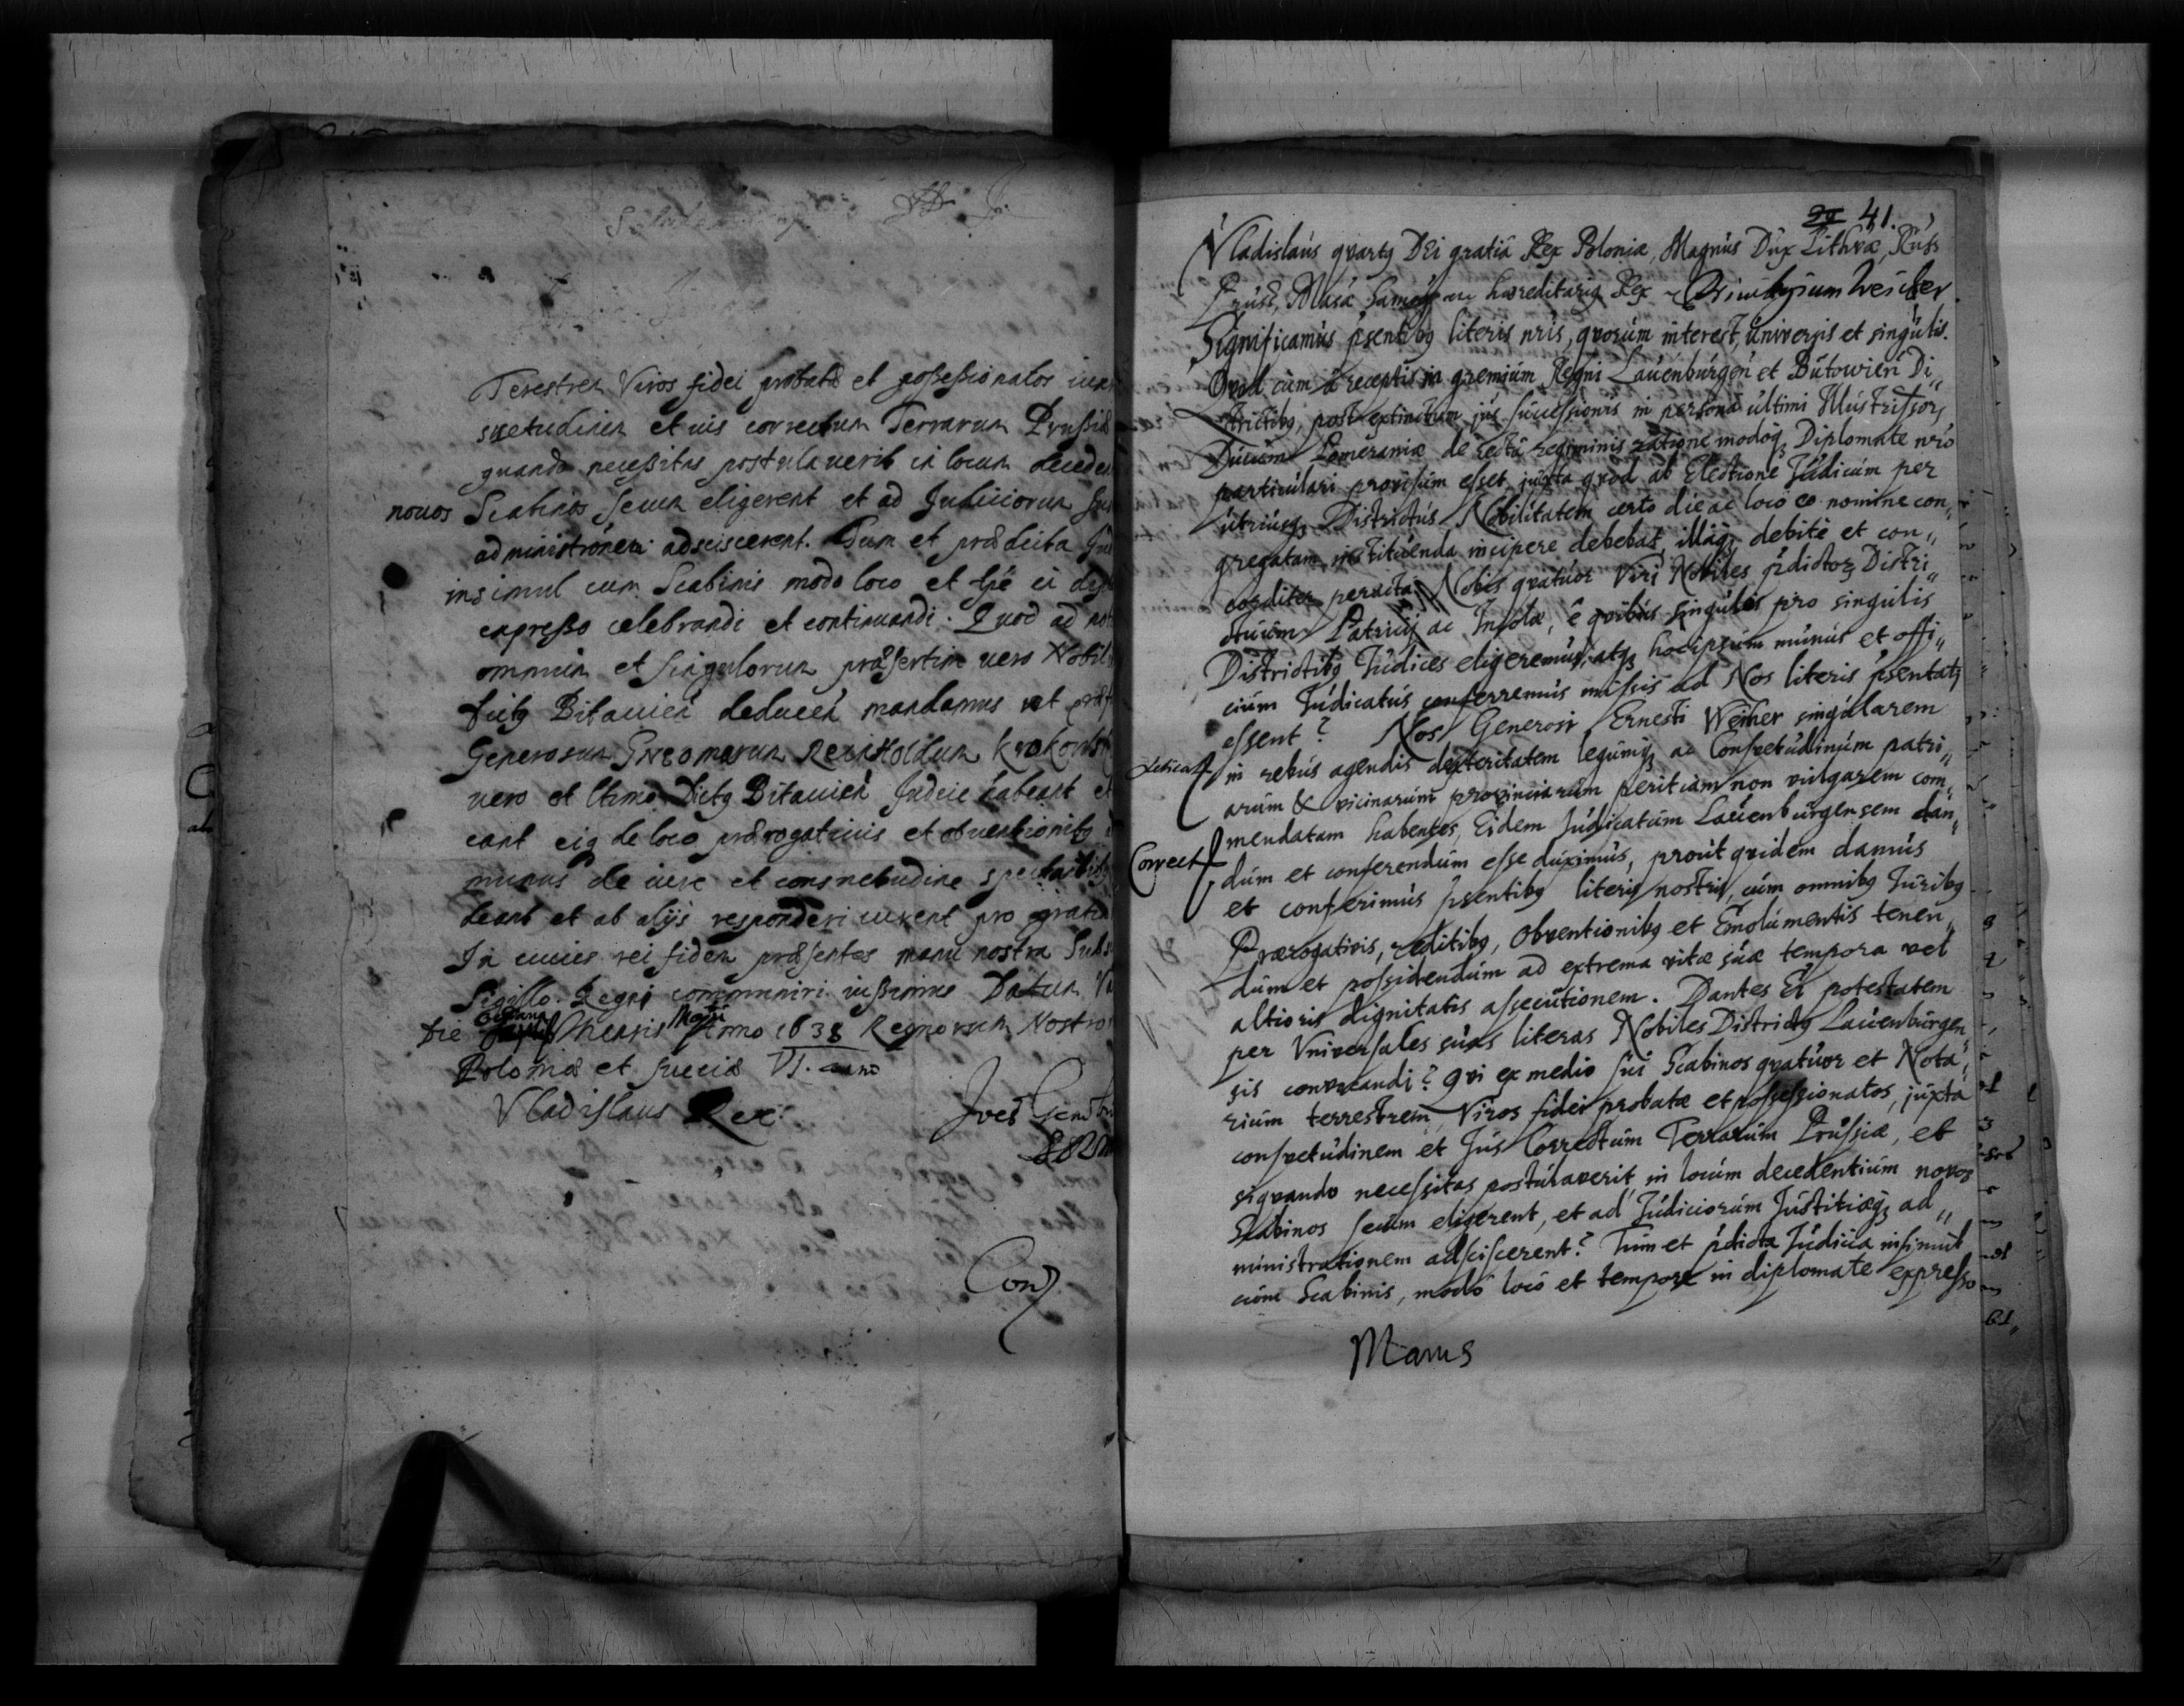 Terestrem Viros fidei probatæ et possessionatos iuxt
suetudinem et ius correctum Terrarum Prussiæ
quando necessitas postulaverit in locum decede
novos Scabinos secum eligerent et ad Judiciorum Jus
administrónem adsciscerent. Tum et prædicta Jud
insimul cum Scabinis modo loco et tpe in dip
expresso celebrandi et continuandi. Quod ad not
omnium et singulorum præsertim vero Nobil
Bitavień deducen mandamus ut præf
Generosum Gneomarum Reinholdum Krokowsk
vero et ltimo Bitavień Judice habeant et
eant eiq de loco prærogativis et obventionibq
munus de iure et consuetudine spectantibq
deant et ab alijs responderi curent pro gratia
In cuius rei fidem præsentes manu nostra Subs
Sigillo Regni communiri iussimus Datum
Die Octava Mensis Maij Anno 1638 Regnorum Nostro
Poloniæ et Sueciæ VI. anno
Vladislaus Rex
Con
41.
Vladislaús qvartq DEi gratiâ Rex Poloniæ, Magnús Dúx Lithvæ, Rúss
Prúss, Masæ Samog hæreditariq Rex Weiher
Significamús psentibq literis nris, qvorúm interest, úniversis et singúlis.
Qvod cúm à receptis in gremiúm Regni Laúenbúrgeń et Bútowień Di„
strictibq, post extinctum jús súccessionis in personâ últimi Illústrissor,
Dúcúm Pomeraniæ de rectâ regiminis ratione modoq, Diplomate nrô
particúlari provisúm esset, júxta qvod ab Electione Júdicúm per
útriúsq, Districtús Nobilitatem certo die ac locô eo nomine con„
gregatam, institúenda incipere debebat, illáq, debitè et con„
corditer peractâ, Nobis qvatúor Viri Nobiles pdictor, Distri„
ctúúm Patricij ac Incolæ, ê qvibús singúlos pro singúlis
Districtibq Júdices eligeremús, atq, hocipsúm múnús et offi„
ciúm Júdicatús conferremús missis ad Nos literis psentati
essent? Nos Generosi Ernesti Weiher singúlarem
in rebús agendis dexteritatem legúmq, ac Consvetúdinúm patri„
arúm & vicinarúm provinciarúm peritiam non vúlgarem com„
mendatam habentes, Eidem Júdicatúm Laúenbúrgensem dan„
Correct dúm et conferendúm esse dúximús, proút qvidem damús
et conferimús psentibq literis nostris, cúm omnibq Júribq
Prærogativis, reditibq, obventionibq et Emolúmentis tenen„
dúm et possidendúm ad extrema vitæ súæ tempora vel
altioris dignitatis assecútionem. Dantes Ei potestatem
per Vniversales súas literas Nobiles Districtq Laúenbúrgen„
sis convocandi? qvi ex medio súi Scabinos qvatúor et Nota„
riúm terrestrem, Viros fidei probatæ et possessionatos, júxta
consvetúdinem et Jús Correctúm Terrarúm Prússiæ, et
siqvando necessitas postúlaverit in locúm decedentiúm novos
Scabinos secúm eligerent, et ad Júdiciorúm Jústitiæq, ad„
ministrationem adsciscerent? Túm et pdicta Júdicia insimúl
cúm Scabinis, modô locô et tempore in diplomate expresso
Manus